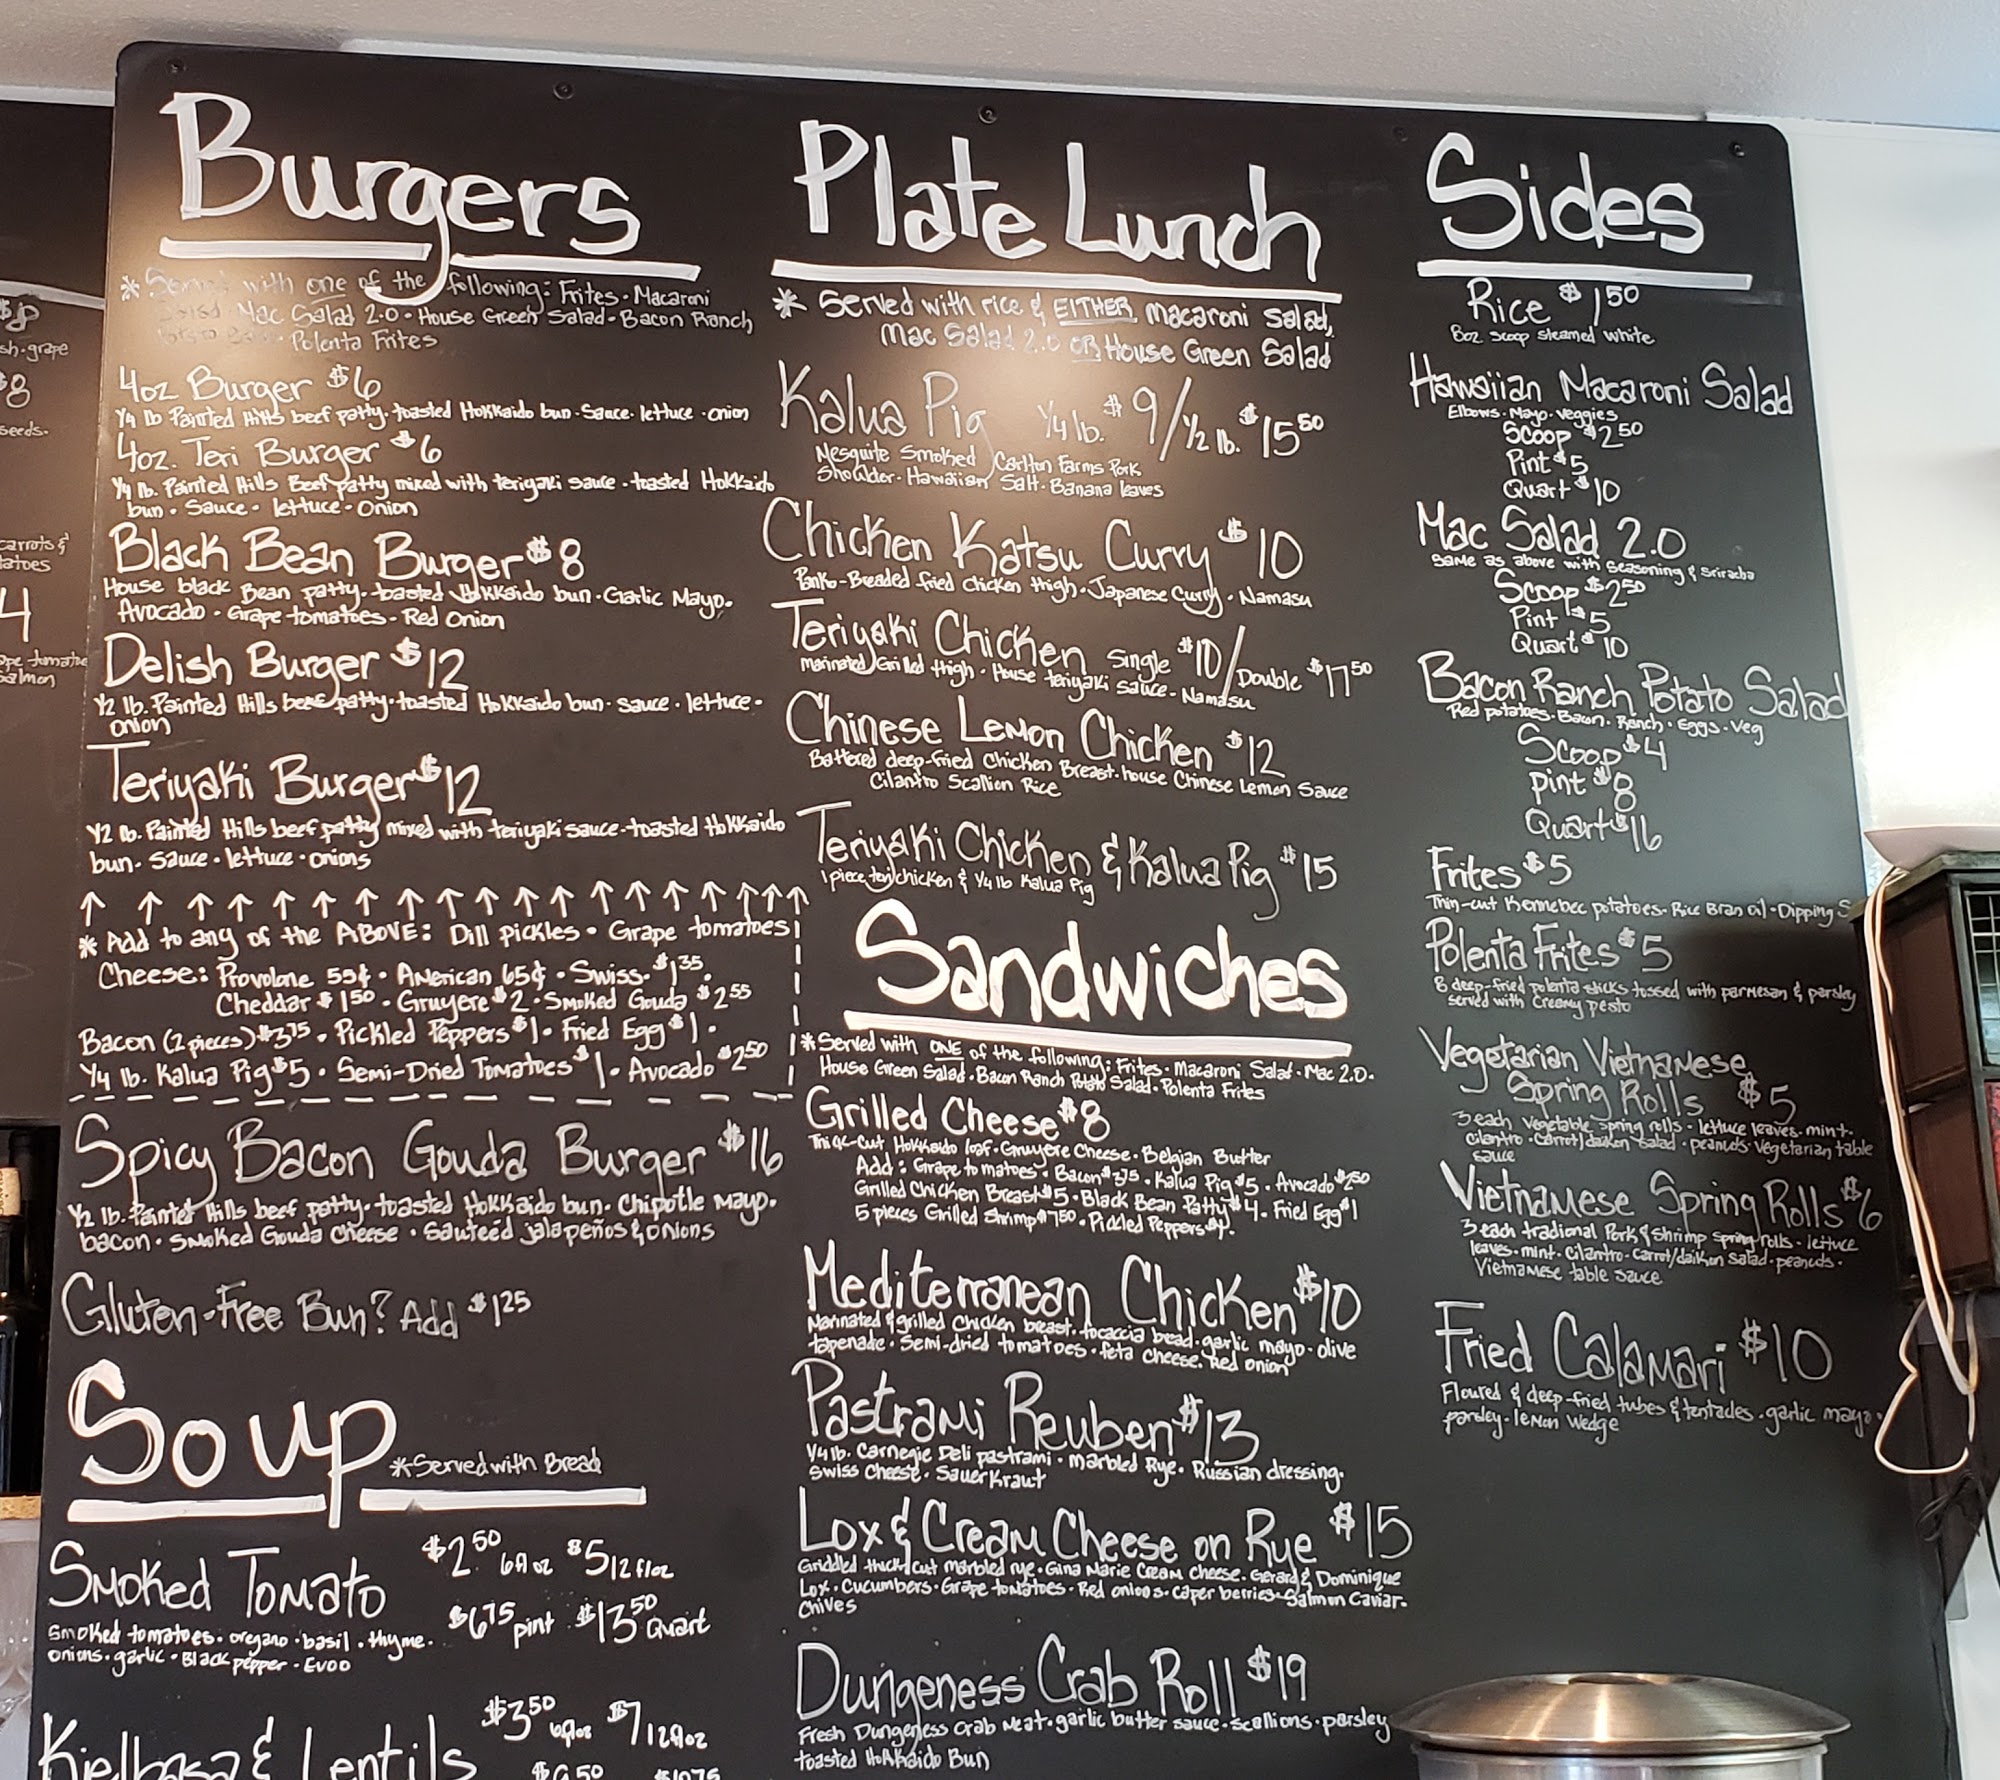 $8
sh·grape
$8
seeds.
carrots &
tatoes
4
ape tomatoe
salmon
Burgers
* Served with one of the following: Frites · Macaroni
Salad · Mac Salad 2.0 · House Green Salad · Bacon Ranch
Potato Salad · Polenta Frites
4oz Burger $6
1/4 lb Painted Hills beef patty · toasted Hokkaido bun · Sauce · lettuce · onion
4oz. Teri Burger $6
1/4 lb. Painted Hills Beef patty mixed with teriyaki sauce · toasted Hokkaido
bun · Sauce · lettuce · Onion
Black Bean Burger $8
House black Bean patty · toasted Hokkaido bun · Garlic Mayo ·
Avocado · Grape tomatoes · Red Onion
Delish Burger $12
1/2 lb. Painted Hills beef patty · toasted Hokkaido bun · sauce · lettuce ·
onion
Teriyaki Burger $12
1/2 lb. Painted Hills beef patty mixed with teriyaki sauce · toasted Hokkaido
bun · Sauce · lettuce · onions
↑ ↑ ↑ ↑ ↑ ↑ ↑ ↑ ↑ ↑ ↑ ↑ ↑ ↑ ↑ ↑ ↑ ↑
* Add to any of the ABOVE: Dill pickles · Grape tomatoes
Cheese: Provolone 55¢ · American 65¢ · Swiss $1.35 ·
Cheddar $1.50 · Gruyere $2 · Smoked Gouda $2.55
Bacon (2 pieces) $3.75 · Pickled Peppers $1 · Fried Egg $1 ·
1/4 lb. Kalua Pig $5 · Semi-Dried Tomatoes $1 · Avocado $2.50
Spicy Bacon Gouda Burger $16
1/2 lb. Painted Hills beef patty · toasted Hokkaido bun · Chipotle Mayo ·
bacon · Smoked Gouda Cheese · Sauteéd jalapeños & onions
Gluten-Free Bun? Add $1.25
Soup * Served with Bread
Smoked Tomato $2.50 6fl oz $5 12 fl oz
$6.75 pint $13.50 Quart
Smoked tomatoes · oregano · basil · thyme ·
onions · garlic · Black pepper · Evoo
Kielbasa & Lentils $3.50 6floz $7 12floz
Plate Lunch
* Served with rice & EITHER macaroni salad,
Mac Salad 2.0 OR House Green Salad
Kalua Pig 1/4 lb. $9 / 1/2 lb. $15.50
Mesquite Smoked Carlton Farms Pork
Shoulder · Hawaiian Salt · Banana leaves
Chicken Katsu Curry $10
Panko-Breaded fried chicken thigh · Japanese Curry · Namasu
Teriyaki Chicken Single $10 / Double $17.50
Marinated/Grilled thigh · House teriyaki sauce · Namasu
Chinese Lemon Chicken $12
Battered deep-fried Chicken Breast · house Chinese Lemon Sauce
Cilantro Scallion Rice
Teriyaki Chicken & Kalua Pig $15
1 piece teri chicken & 1/4 lb Kalua Pig
Sandwiches
* Served with ONE of the following: Frites · Macaroni Salad · Mac 2.0 ·
House Green Salad · Bacon Ranch Potato Salad · Polenta Frites
Grilled Cheese $8
Thick-cut Hokkaido loaf · Gruyere Cheese · Belgian Butter
Add: Grape tomatoes · Bacon $3.75 · Kalua Pig $5 · Avocado $2.50
Grilled Chicken Breast $5 · Black Bean Patty $4 · Fried Egg $1
5 pieces Grilled Shrimp $7.50 · Pickled Peppers $1.
Mediterranean Chicken $10
Marinated & grilled Chicken breast · focaccia bread · garlic mayo · olive
tapenade · Semi-dried tomatoes · feta cheese · Red onion
Pastrami Reuben $13
1/4 lb. Carnegie Deli pastrami · marbled Rye · Russian dressing ·
Swiss Cheese · SauerKraut
Lox & Cream Cheese on Rye $15
Griddled thick cut marbled rye · Gina Marie Cream cheese · Gerard & Dominique
Lox · Cucumbers · Grape tomatoes · Red onions · Caper berries · Salmon Caviar ·
Chives
Dungeness Crab Roll $19
Fresh Dungeness Crab Meat · garlic butter sauce · scallions · parsley
toasted Hokkaido Bun
Sides
Rice $1.50
8oz scoop steamed white
Hawaiian Macaroni Salad
Elbows · Mayo · Veggies
Scoop $2.50
Pint $5
Quart $10
Mac Salad 2.0
Same as above with seasoning & sriracha
Scoop $2.50
Pint $5
Quart $10
Bacon Ranch Potato Salad
Red potatoes · Bacon · Ranch · Eggs · Veg
Scoop $4
Pint $8
Quart $16
Frites $5
Thin-cut Kennebec potatoes · Rice Bran Oil · Dipping S
Polenta Frites $5
8 deep-fried polenta sticks tossed with parmesan & parsley
served with Creamy pesto
Vegetarian Vietnamese
Spring Rolls $5
3 each vegetable spring rolls · lettuce leaves · mint ·
Cilantro · Carrot/daikon Salad · peanuts · vegetarian table
sauce
Vietnamese Spring Rolls $6
3 each tradional Pork & Shrimp spring rolls · lettuce
leaves · mint · Cilantro · Carrot/daikon Salad · peanuts ·
Vietnamese table Sauce
Fried Calamari $10
Floured & deep-fried tubes & tentacles · garlic mayo ·
parsley · lemon wedge